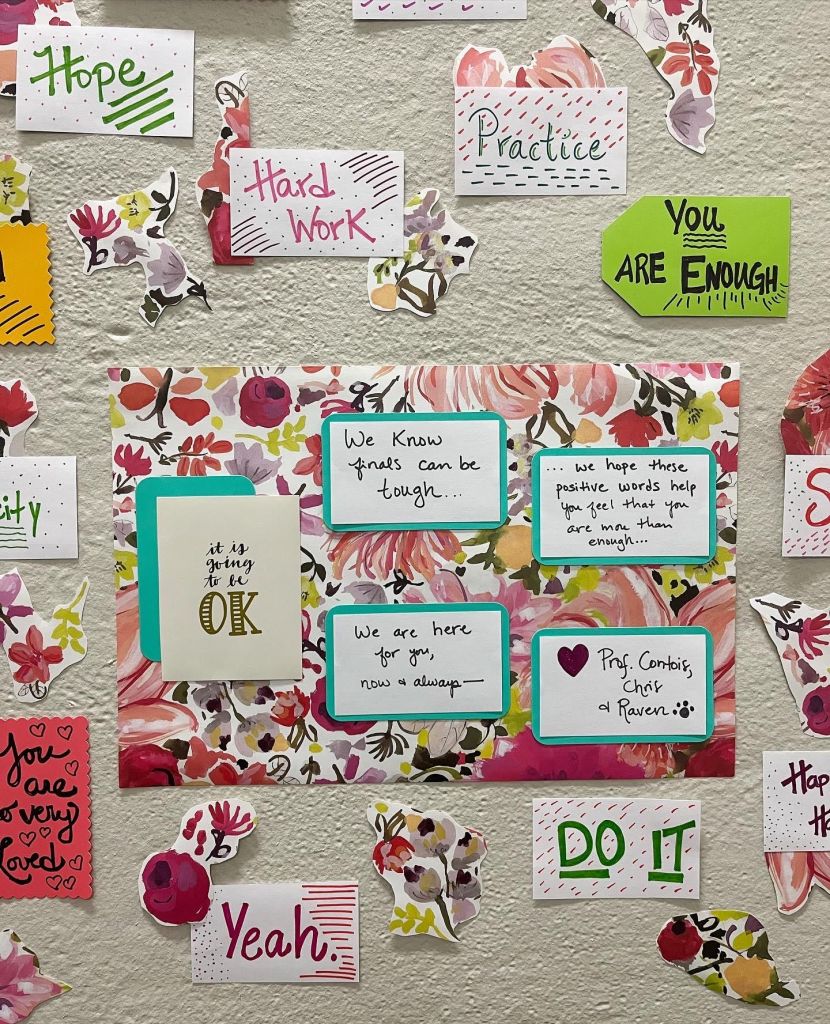 Hope
Practice
Hard
Work
You
ARE ENOUGH
We Know
finals can be
tough...
... we hope these
positive words help
you feel that you
are more than
enough...
it is
going
to be
OK
We are here
for you,
now & always—
Prof. Contois,
Chris
& Raven
You
are
very
Loved
DO IT
Yeah.